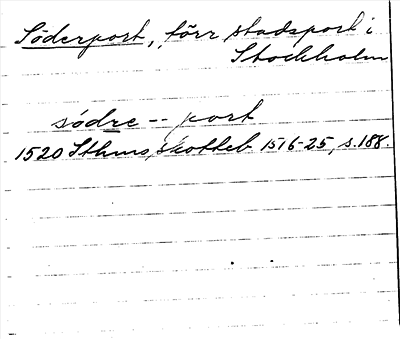 Söderport, förr stadsport i
Stockholm
södre -- port
1520 Sthms skotteb 1516-25, s. 188.